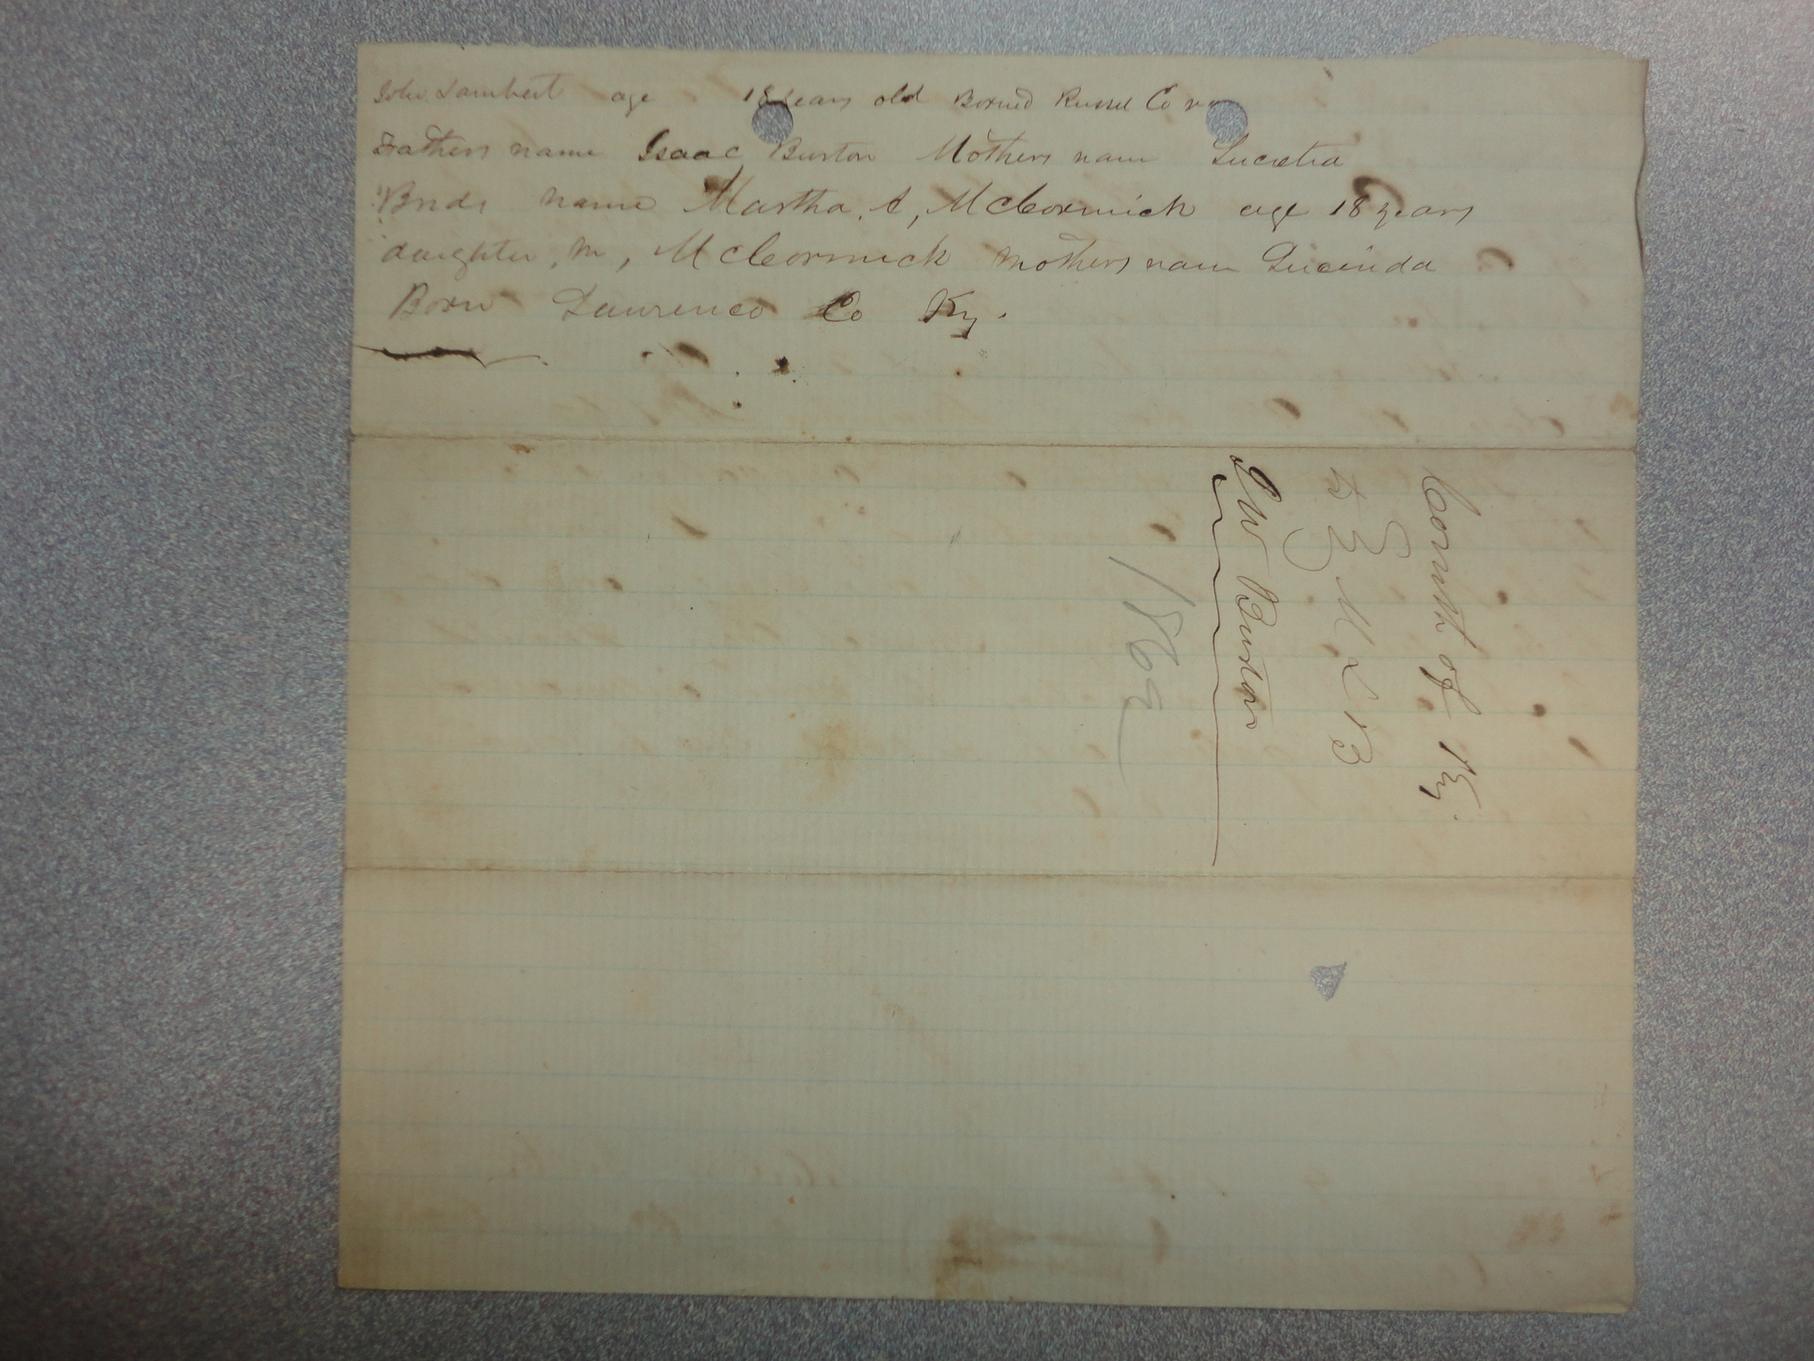 John Lambert age 18 years old Borned Russel Co
Fathers name Isaac Burton Mothers nam Lucretia
Brids name Martha, A, McCormick age 18 years
daughter, M, McCormick mothers nam Lucinda
Born Lawrence Co Ky.
Comth of Ky.
to M L B
W Burton
1869